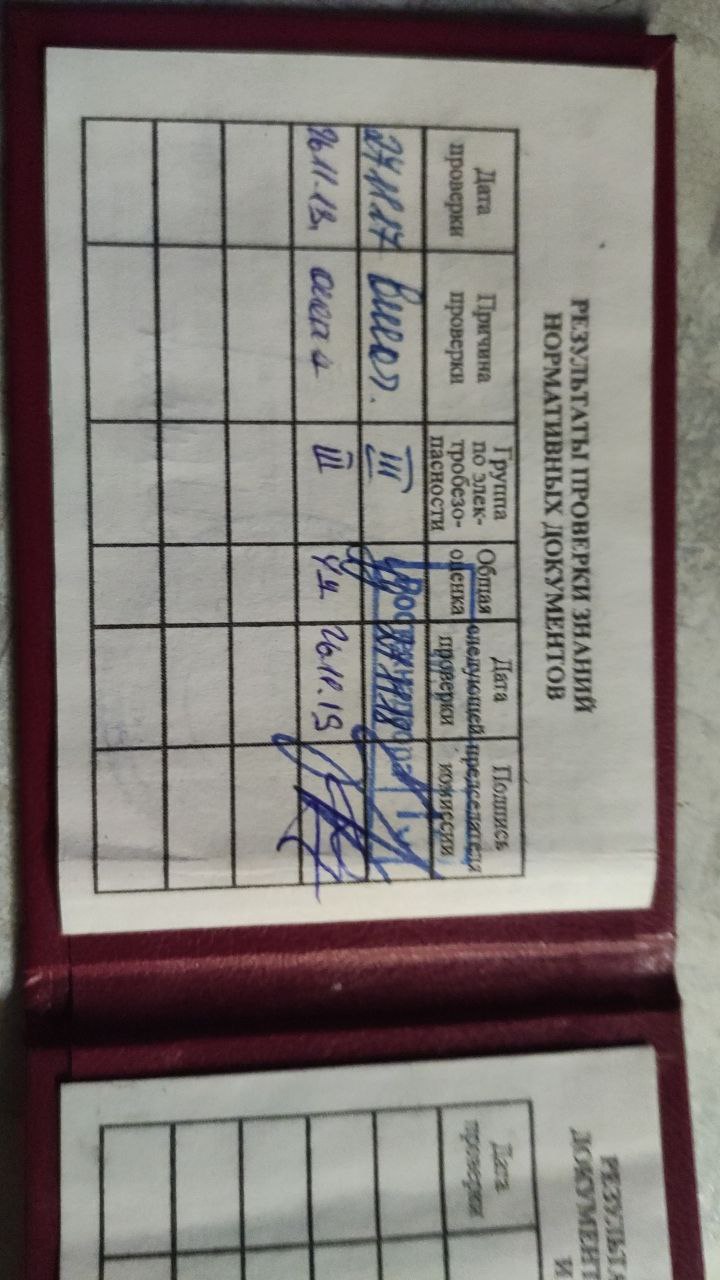 РЕЗУЛЬТАТЫ ПРОВЕРКИ ЗНАНИЙ
НОРМАТИВНЫХ ДОКУМЕНТОВ
Дата проверки
Причина проверки
Группа по элек-тробезо-пасности
Общая оценка
Дата следующей проверки
Подпись председателя комиссии
27.11.17 III 27.11.18
26.11.18 III 26.11.19
РЕЗУЛЬТА
ДОКУМЕНТ
И
Дата
проверки